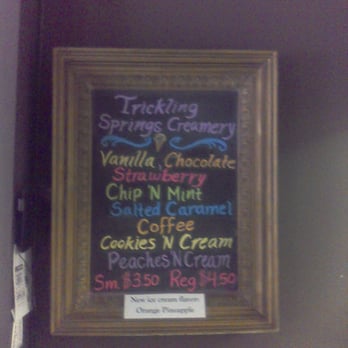 Trickling
Springs Creamery
Vanilla, Chocolate
Strawberry
Chip 'N Mint
Salted Caramel
Coffee
Cookies 'N Cream
Peaches 'N Cream
Sm. $3.50 Reg $4.50
New ice cream flavor:
Orange Pineapple